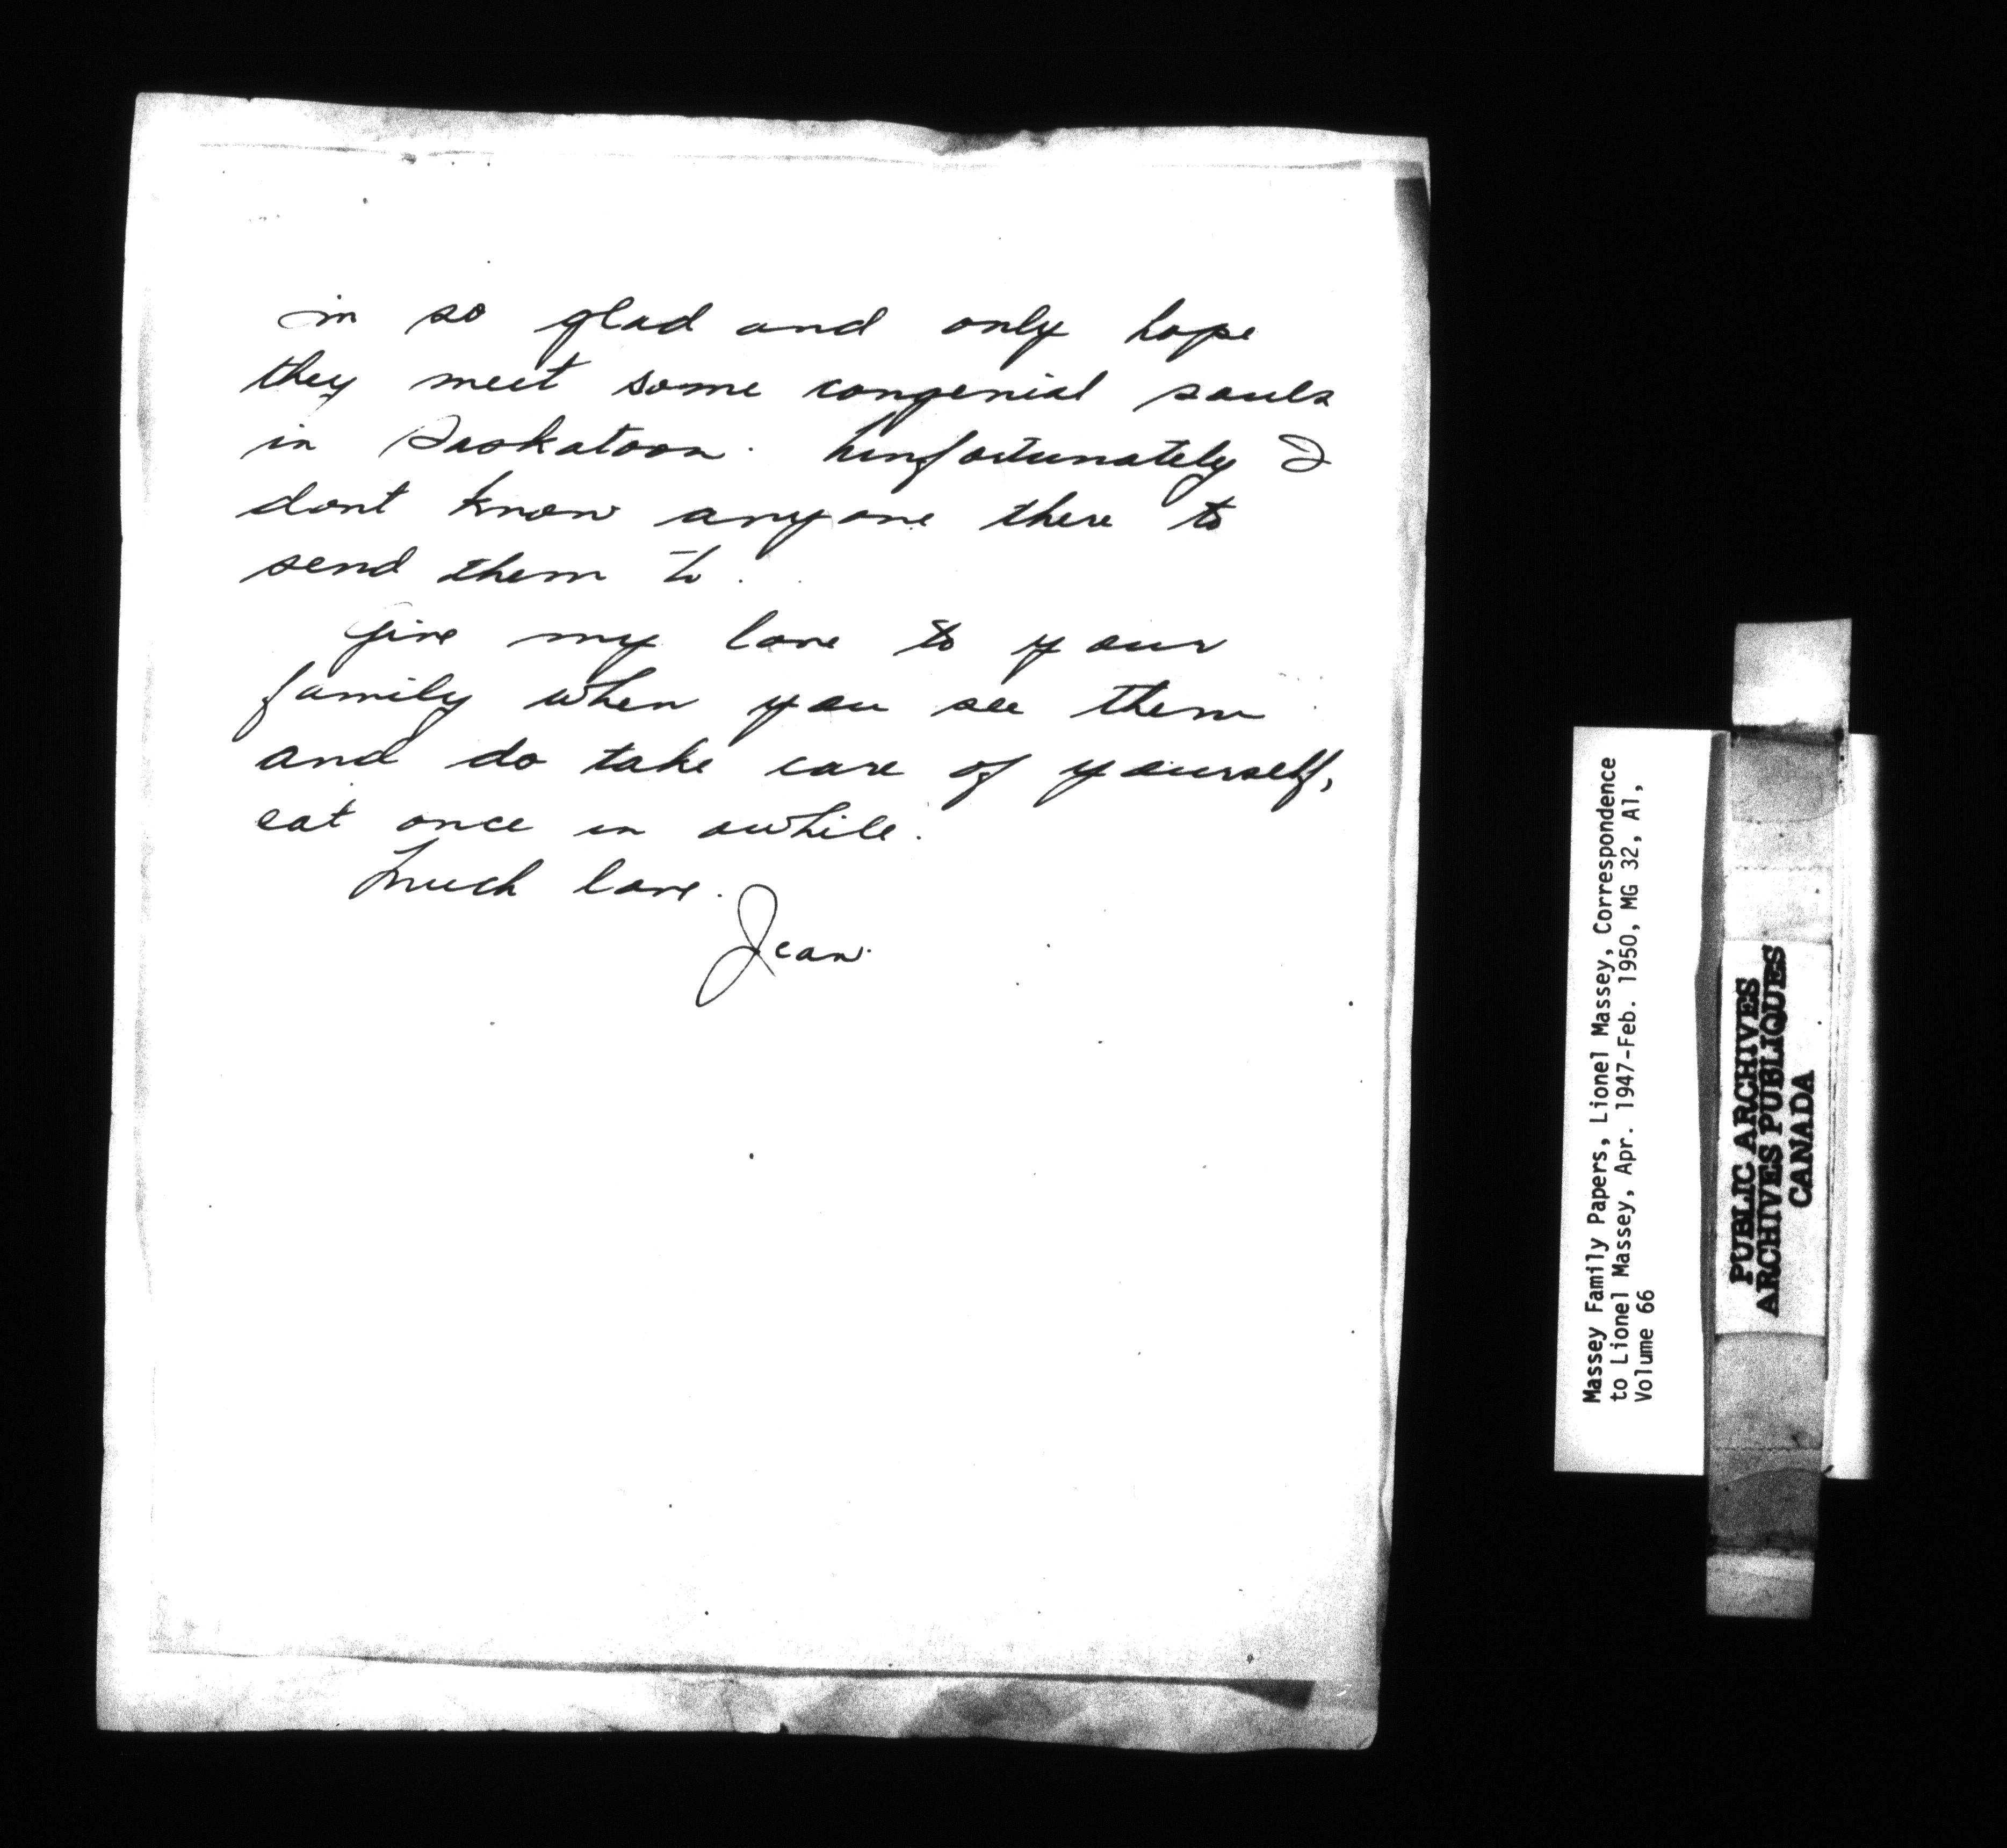 Im so glad and only hope
they meet some congenial souls
in Saskatoon. Unfortunately I
dont know anyone there to
send them to.
Give my love to your
family when you see them
and do take care of yourself,
eat once in awhile.
Much love.
Jean.
Massey Family Papers, Lionel Massey, Correspondence
to Lionel Massey, Apr. 1947-Feb. 1950, MG 32, A1,
Volume 66
PUBLIC ARCHIVES
ARCHIVES PUBLIQUES
CANADA